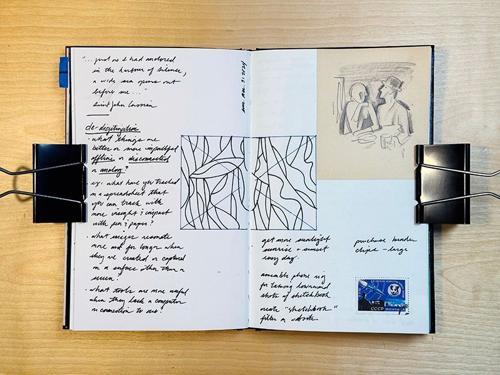 "... just as I had anchored
in the harbour of silence,
a wide sea opens out
before me..."
Saint John Cassian
de-digitization
• what things are
better or more impactful
offline or disconnected
or analog?
eg: what have you tracked
on a spreadsheet that
you can track with
more insight & impact
with pen & paper?
• what images resonate
more and for longer when
they are created or captured
on a surface than than a
screen.
• what tools are more useful
when they lack a computer
or connection to one?
get more sunlight
sunrise + sunset
every day.
assemble phone rig
for taking downward
shots of sketchbook
create "sketchbook"
filter in
purchase binder
clips - large
СССР